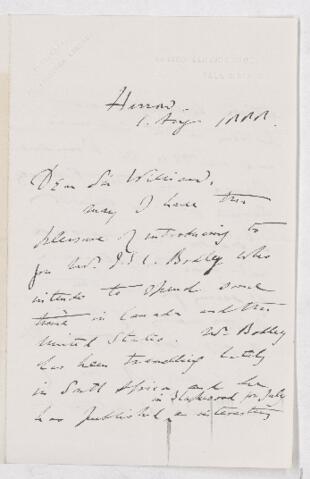 Harrow.
1. Augt 1888.
Dear Sir William,
may I have the
pleasure of introducing to
you Mr. J. E. C. Bodley who
intends to spend some
time in Canada and the
United States. Mr Bodley
has been travelling lately
in South Africa and he
in Blackwood for July
has published an interesting